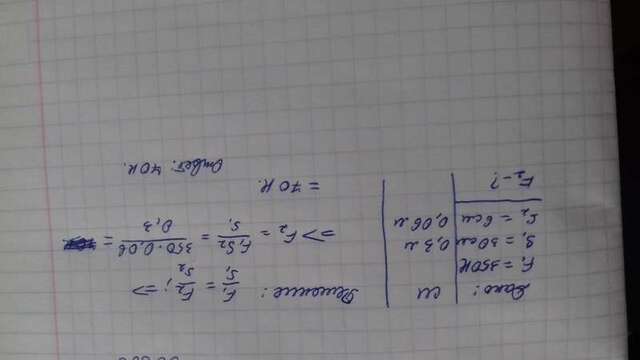 Дано:
F₁ = 350 Н
S₁ = 30 см
S₂ = 6 см
F₂ - ?
СИ
0,3 м
0,06 м
Решение:
F₁/S₁ = F₂/S₂; =>
=> F₂ = F₁S₂/S₁ = 350·0,06/0,3 =
= 70 Н.
Ответ: 70 Н.